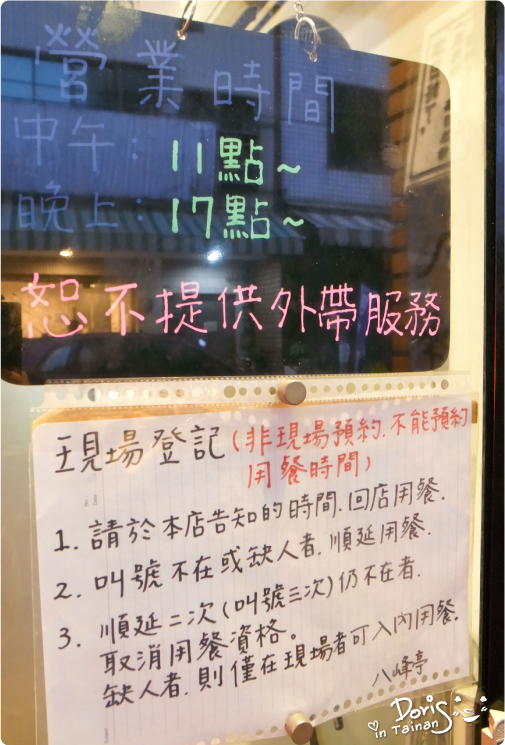 營業時間
中午：11點~
晚上：17點~
恕不提供外帶服務
現場登記(非現場預約.不能預約
用餐時間)
1. 請於本店告知的時間.回店用餐.
2. 叫號不在或缺人者.順延用餐.
3. 順延二次(叫號三次)仍不在者.
取消用餐資格。
缺人者.則僅在現場者可入內用餐.
八峰亭
Doris
in Tainan